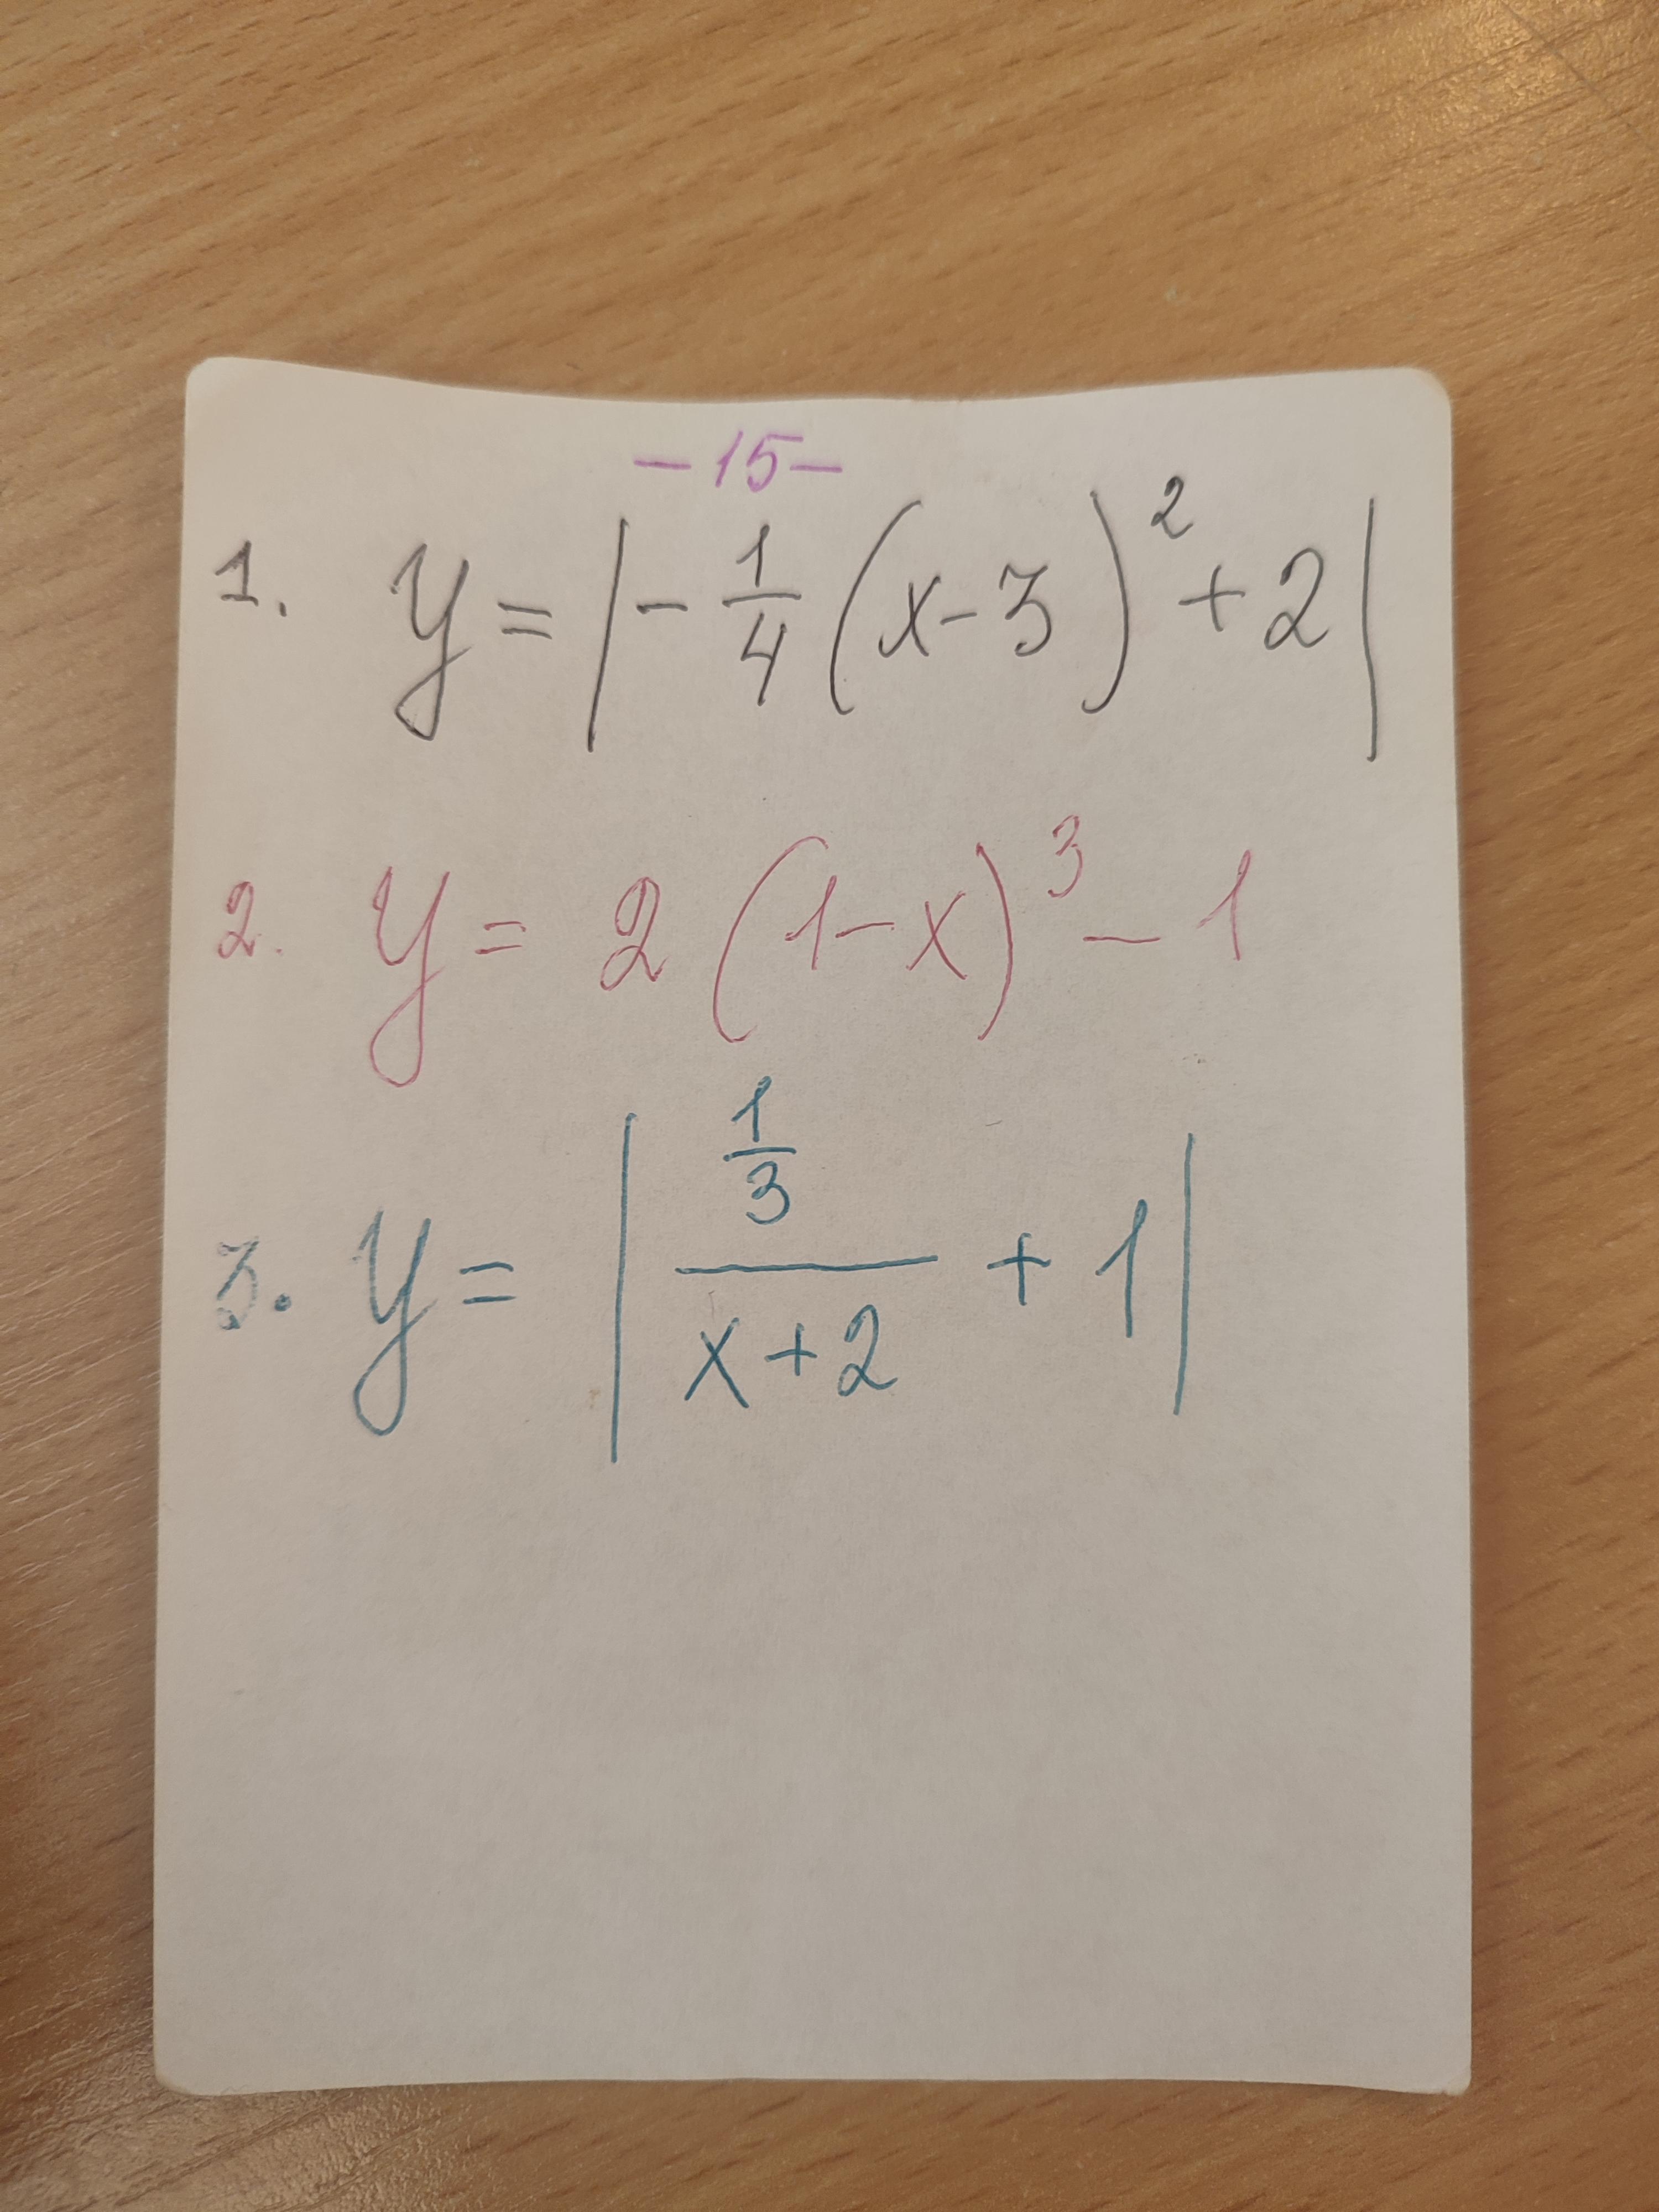 -15-
1. y = |-1/4 (x-3)² + 2|
2. y = 2 (1-x)³ - 1
3. y = |(1/3)/(x+2) + 1|